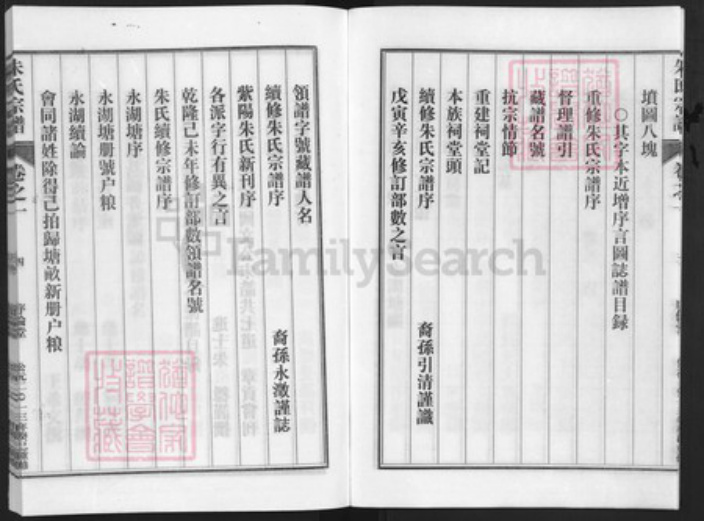 墳圖八塊
○其字本近增序言圖誌譜目録
重修朱氏宗譜序
督理譜引
藏譜名號
抗宗情節
重建祠堂記
本族祠堂頭
續修朱氏宗譜序 裔孫引清謹識
戊寅辛亥修訂部數之言
領譜字號藏譜人名
續修朱氏宗譜序 裔孫永澂謹誌
紫陽朱氏新刊序
各派字行有異之言
乾隆己未年修訂部數領譜名號
朱氏續修宗譜序
永湖塘序
永湖塘册號户粮
永湖續論
會同諸姓除得己拍歸塘畝新册户粮
朱氏宗譜 卷之一
FamilySearch